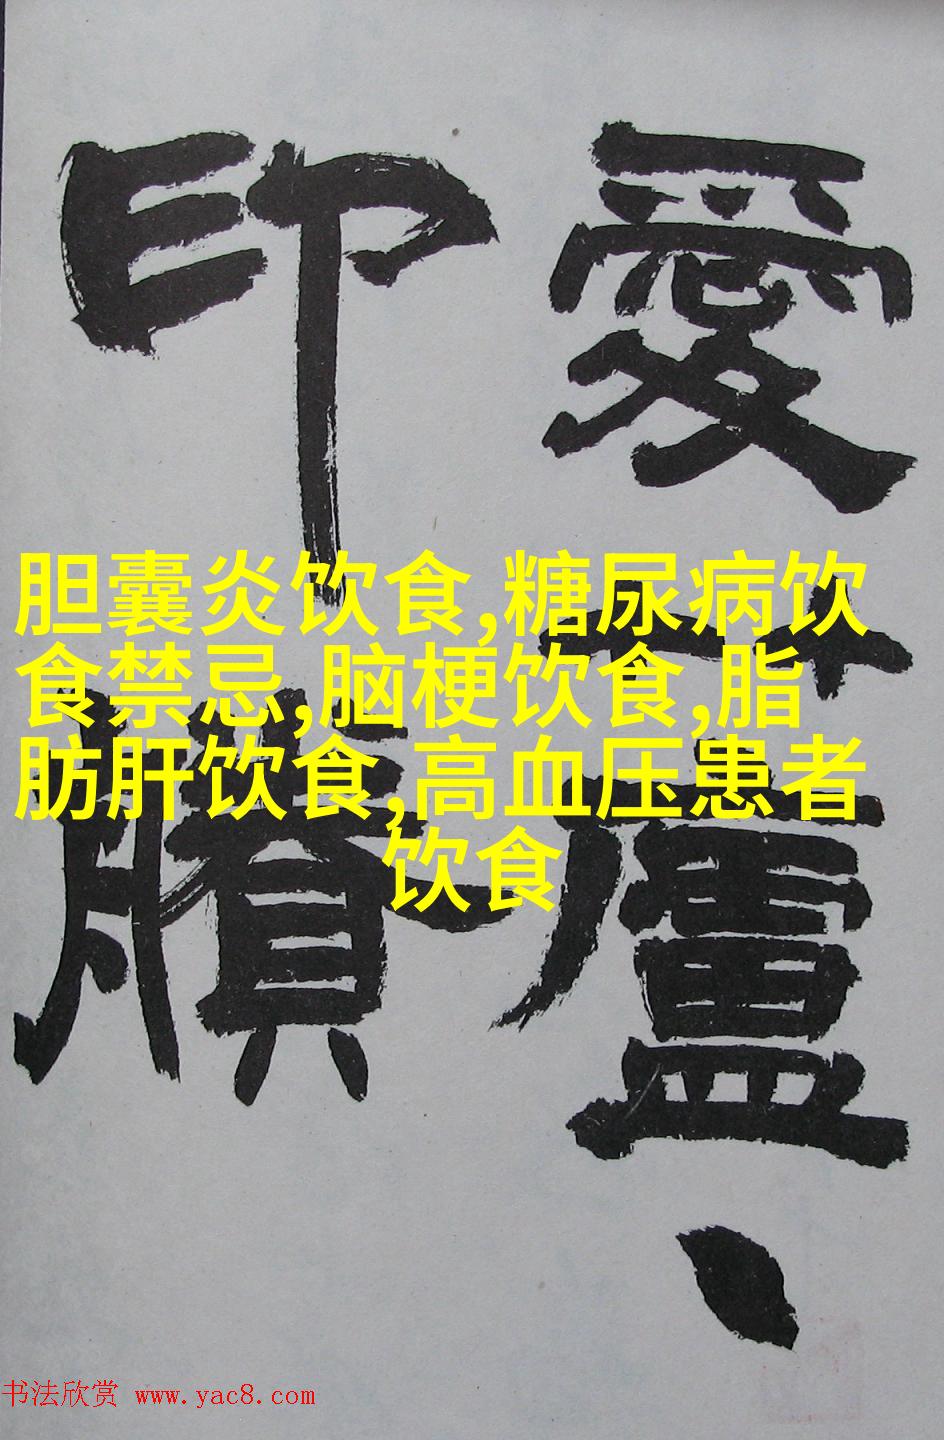 愛廬
印牘
胆囊炎饮食,糖尿病饮
食禁忌,脑梗饮食,脂
肪肝饮食,高血压患者
饮食
书法欣赏 www.yac8.com